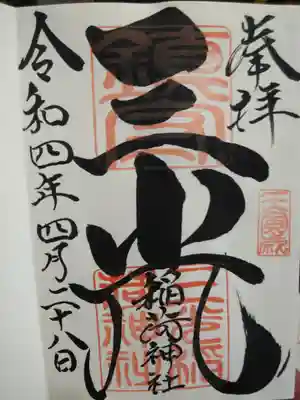 奉拝
三光
稲荷神社
令和四年四月二十八日